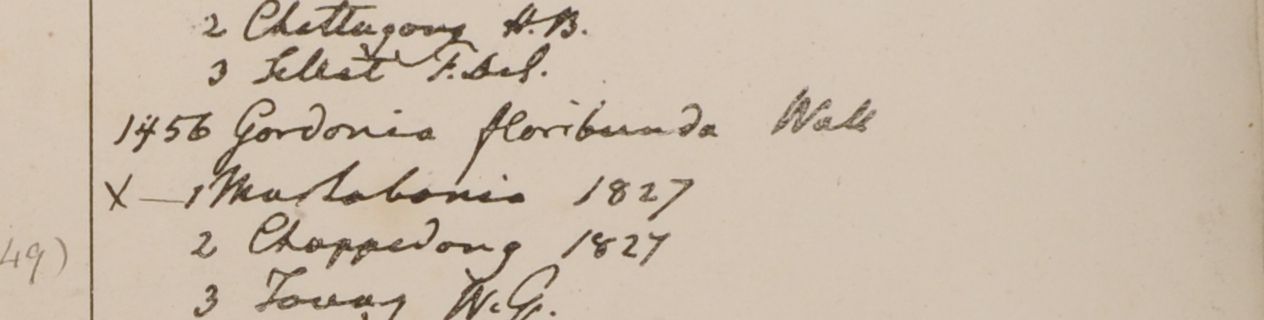 2 Chittagong H.B.
3 Sillet F.deS.
1456 Gordonia floribunda Wall
X — 1 Martabania 1827
2 Chappedong 1827
49)
3 Tavoy W.G.